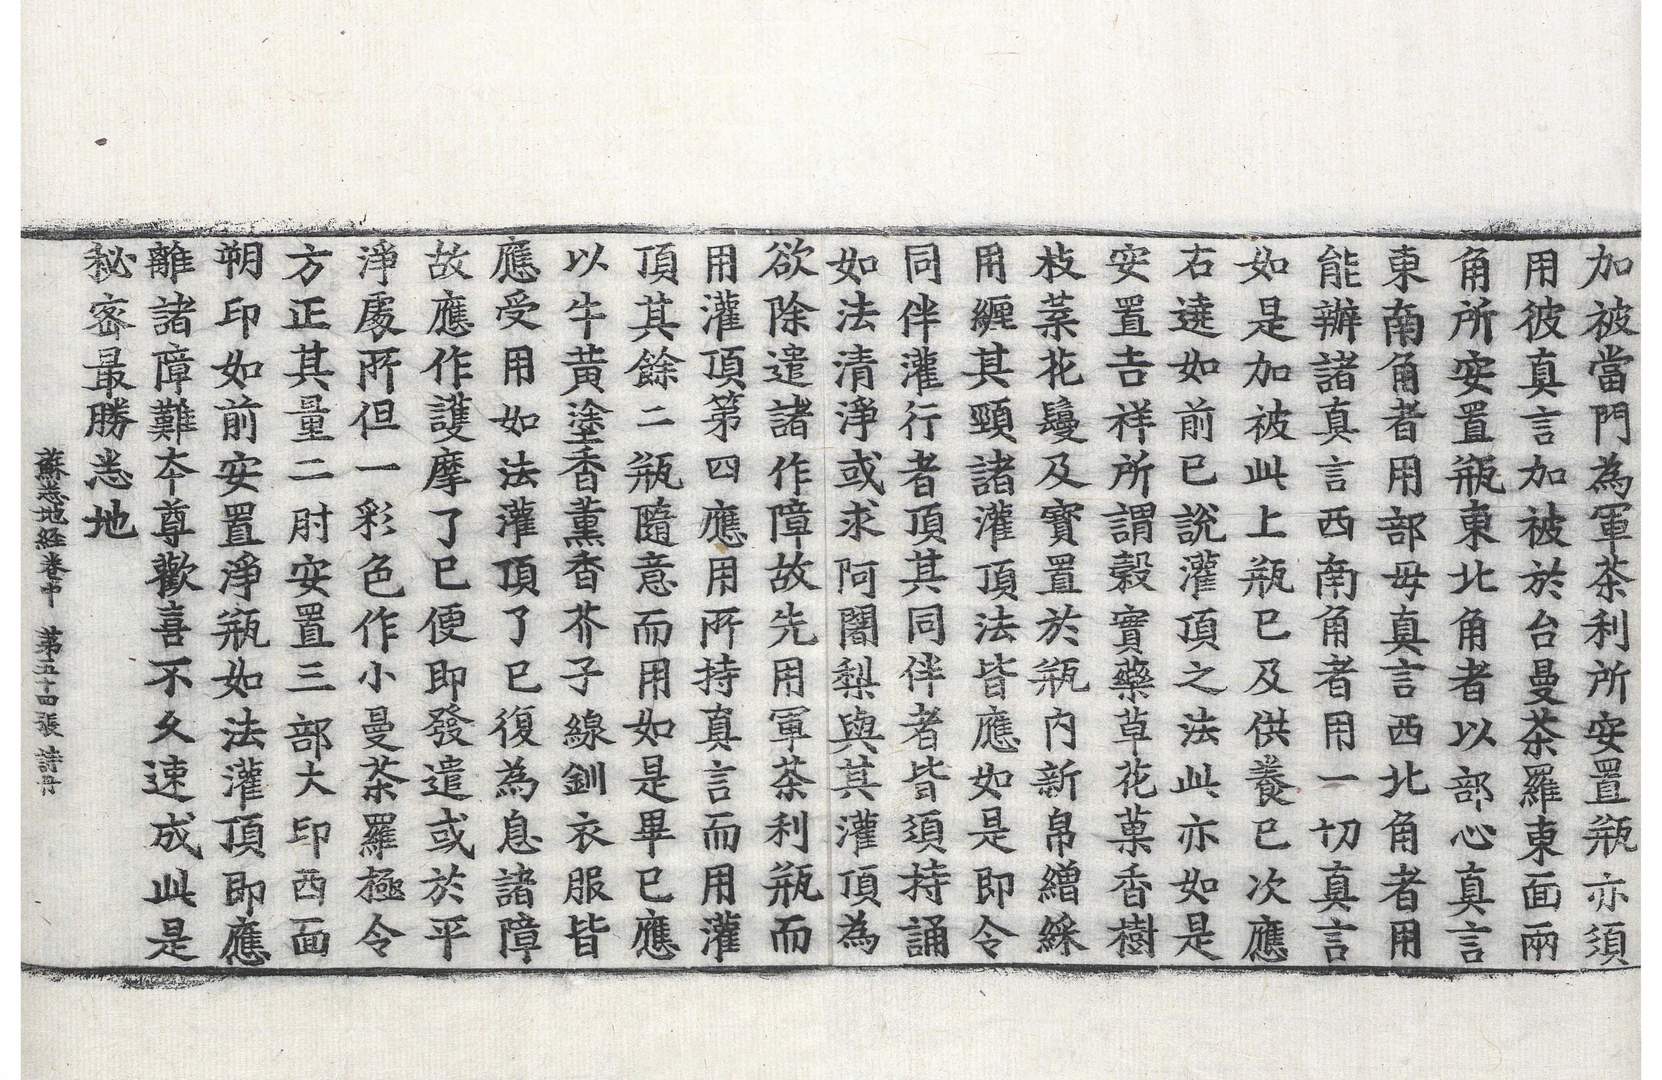 加被當門為軍茶利所安置瓶亦須
用彼真言加被於台曼茶羅東面兩
角所安置瓶東北角者以部心真言
東南角者用部母真言西北角者用
能辦諸真言西南角者用一切真言
如是加被此上瓶已及供養已次應
右遶如前已說灌頂之法此亦如是
安置吉祥所謂穀實藥草花菓香樹
枝葉花鬘及寶置於瓶內新帛繒綵
用纏其頸諸灌頂法皆應如是即令
同伴灌行者頂其同伴者皆須持誦
如法清淨或求阿闍梨與其灌頂為
欲除遣諸作障故先用軍茶利瓶而
用灌頂第四應用所持真言而用灌
頂其餘二瓶隨意而用如是畢已應
以牛黃塗香薰香芥子線釧衣服皆
應受用如法灌頂了已復為息諸障
故應作護摩了已便即發遣或於平
淨處所但一彩色作小曼茶羅極令
方正其量二肘安置三部大印西面
朔印如前安置淨瓶如法灌頂即應
離諸障難本尊歡喜不久速成此是
秘密最勝悉地
蘇悉地經卷中 第五十四張 詩